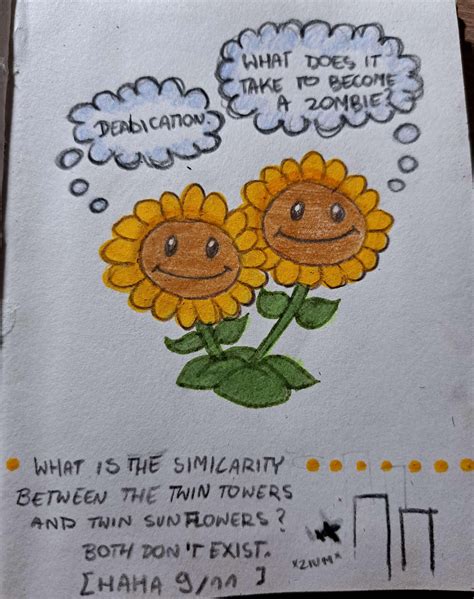 WHAT DOES IT
TAKE TO BECOME
A ZOMBIE?
DEADICATION
WHAT IS THE SIMILARITY
BETWEEN THE TWIN TOWERS
AND TWIN SUNFLOWERS?
BOTH DON'T EXIST.
[HAHA 9/11]
*ZIUM*